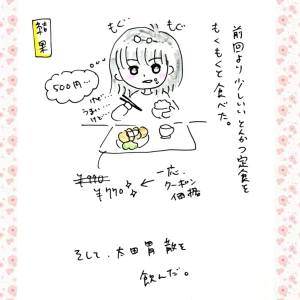 結果
前回より少しいいとんかつ定食を
もくもくと食べた。
もぐ
もぐ
500円…
けど
うまい
けど…
¥990
¥770
←一応、
クーポン
価格
そして、太田胃散を
飲んだ。